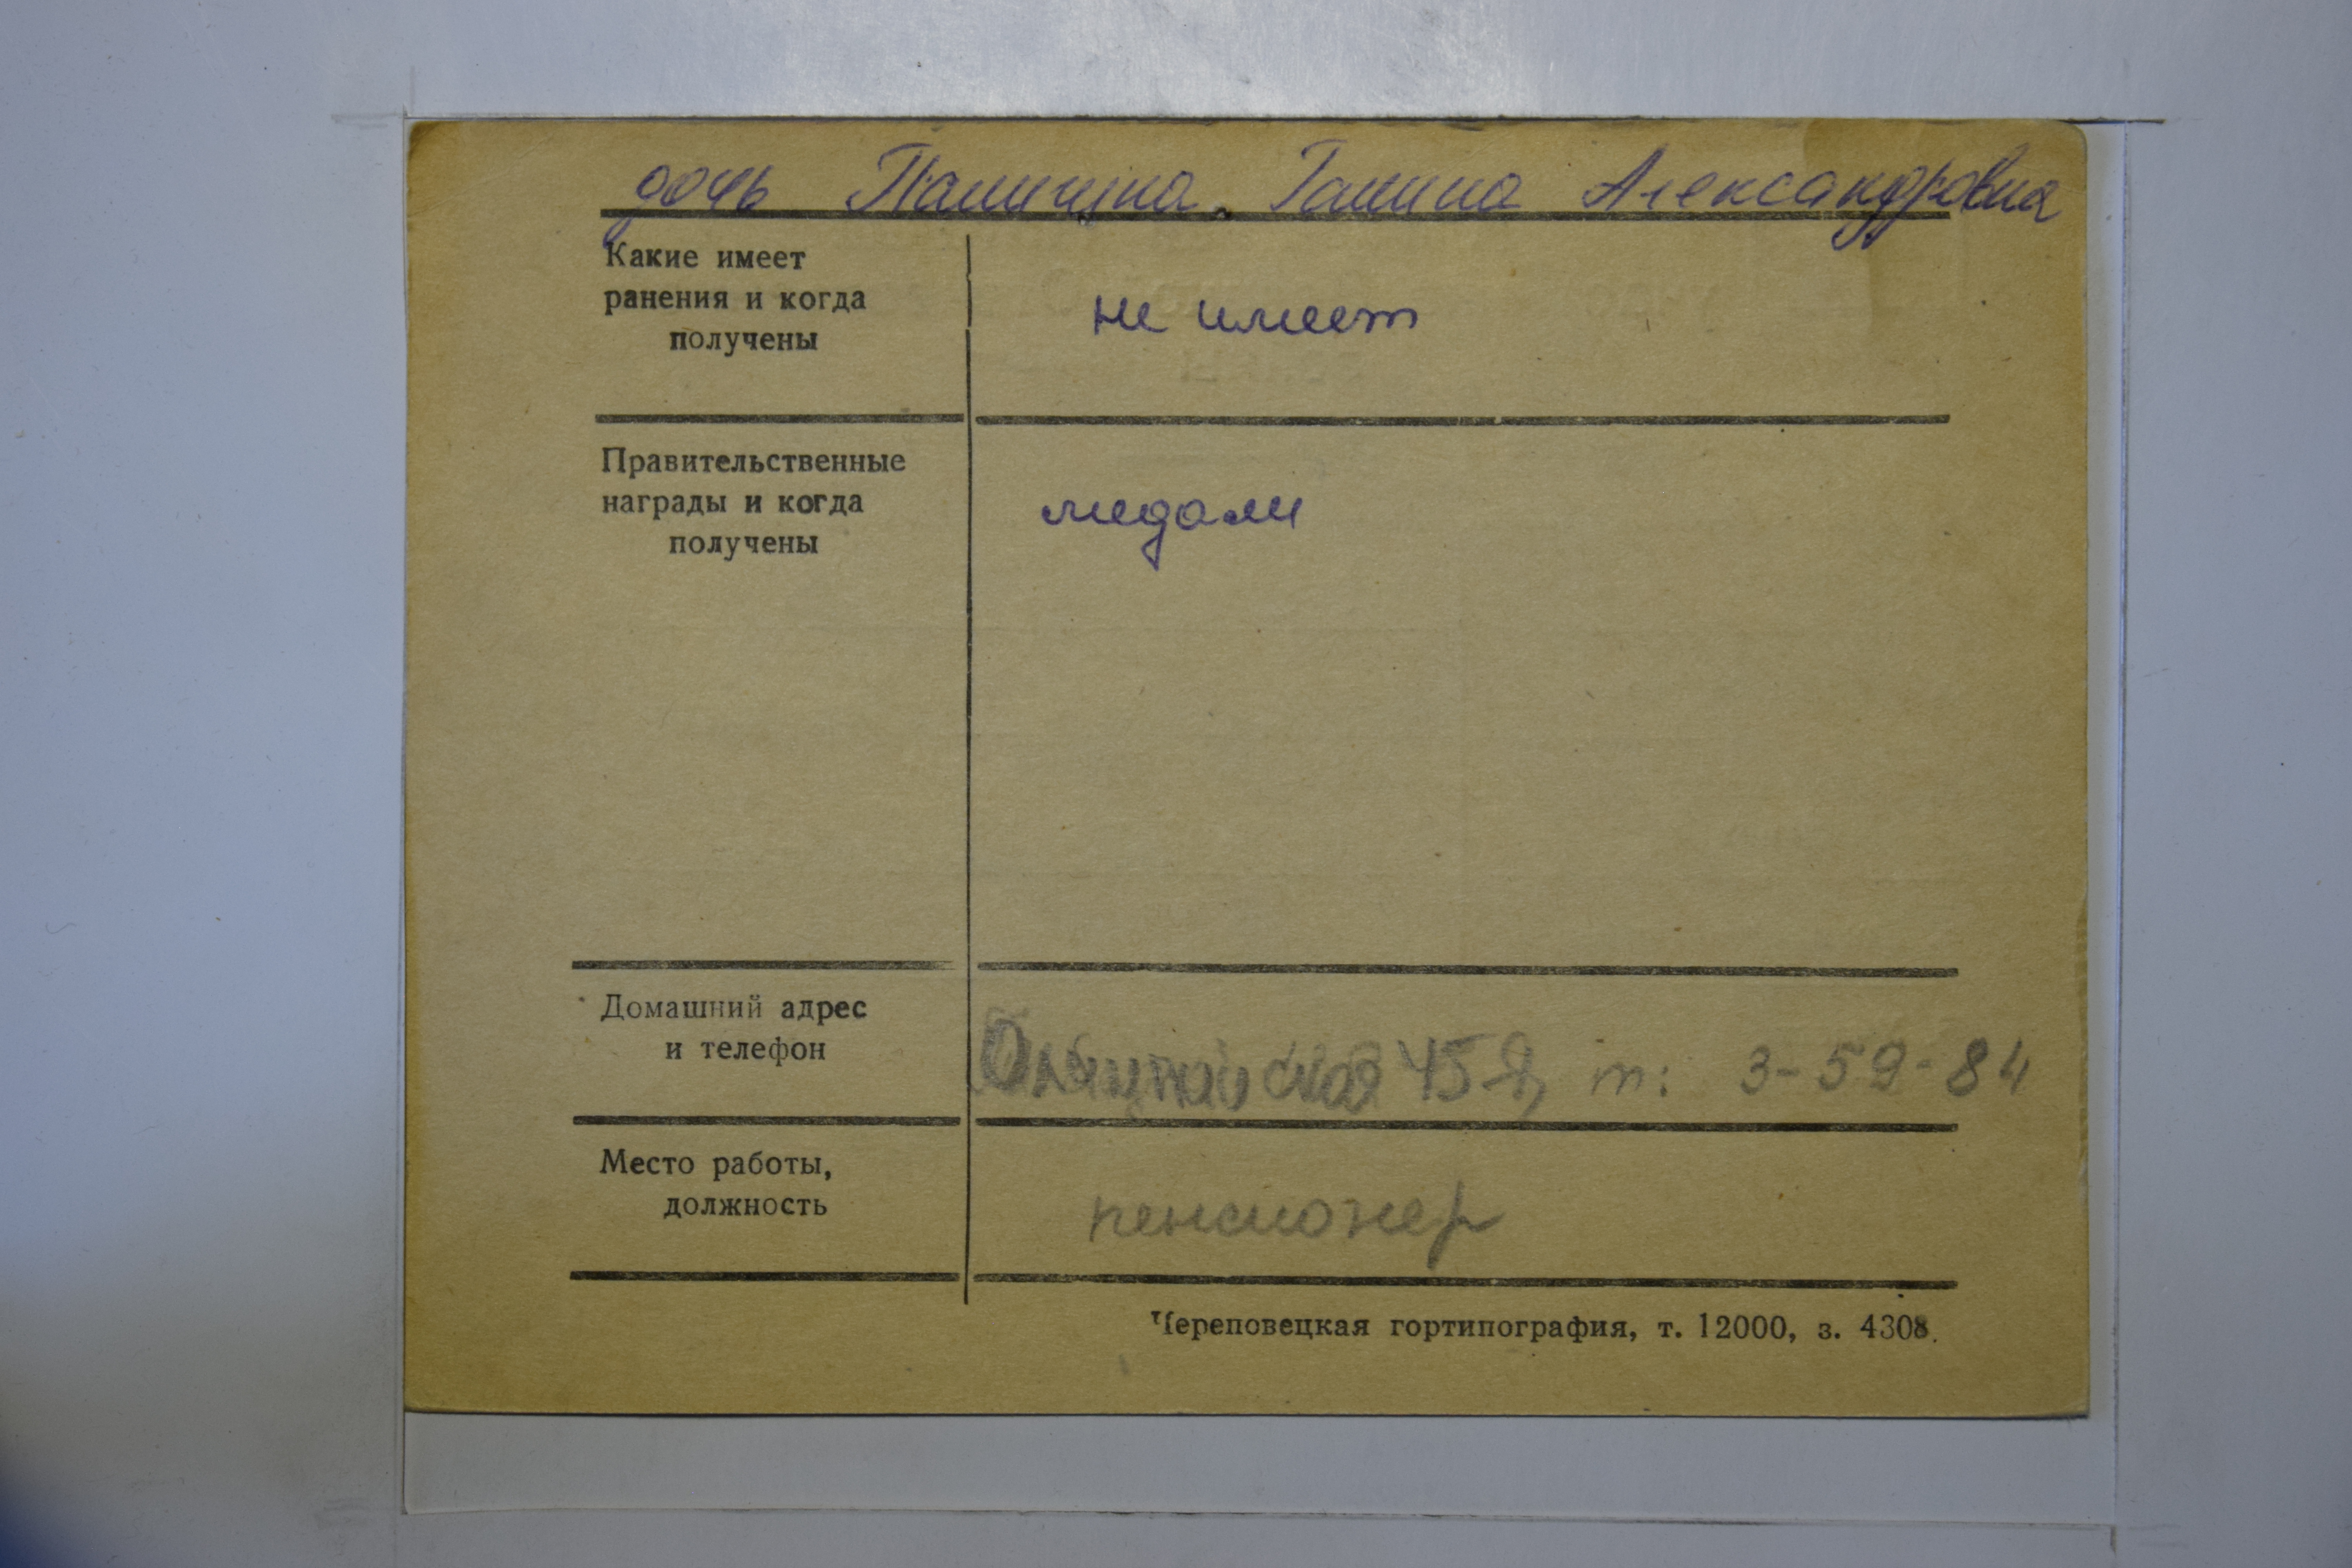 дочь Галина Александровна
Какие имеет
ранения и когда
получены
не имеет
Правительственные
награды и когда
получены
медали
Домашний адрес
и телефон
т: 3-59-84
Место работы,
должность
пенсионер
Череповецкая гортипография, т. 12000, з. 4308.